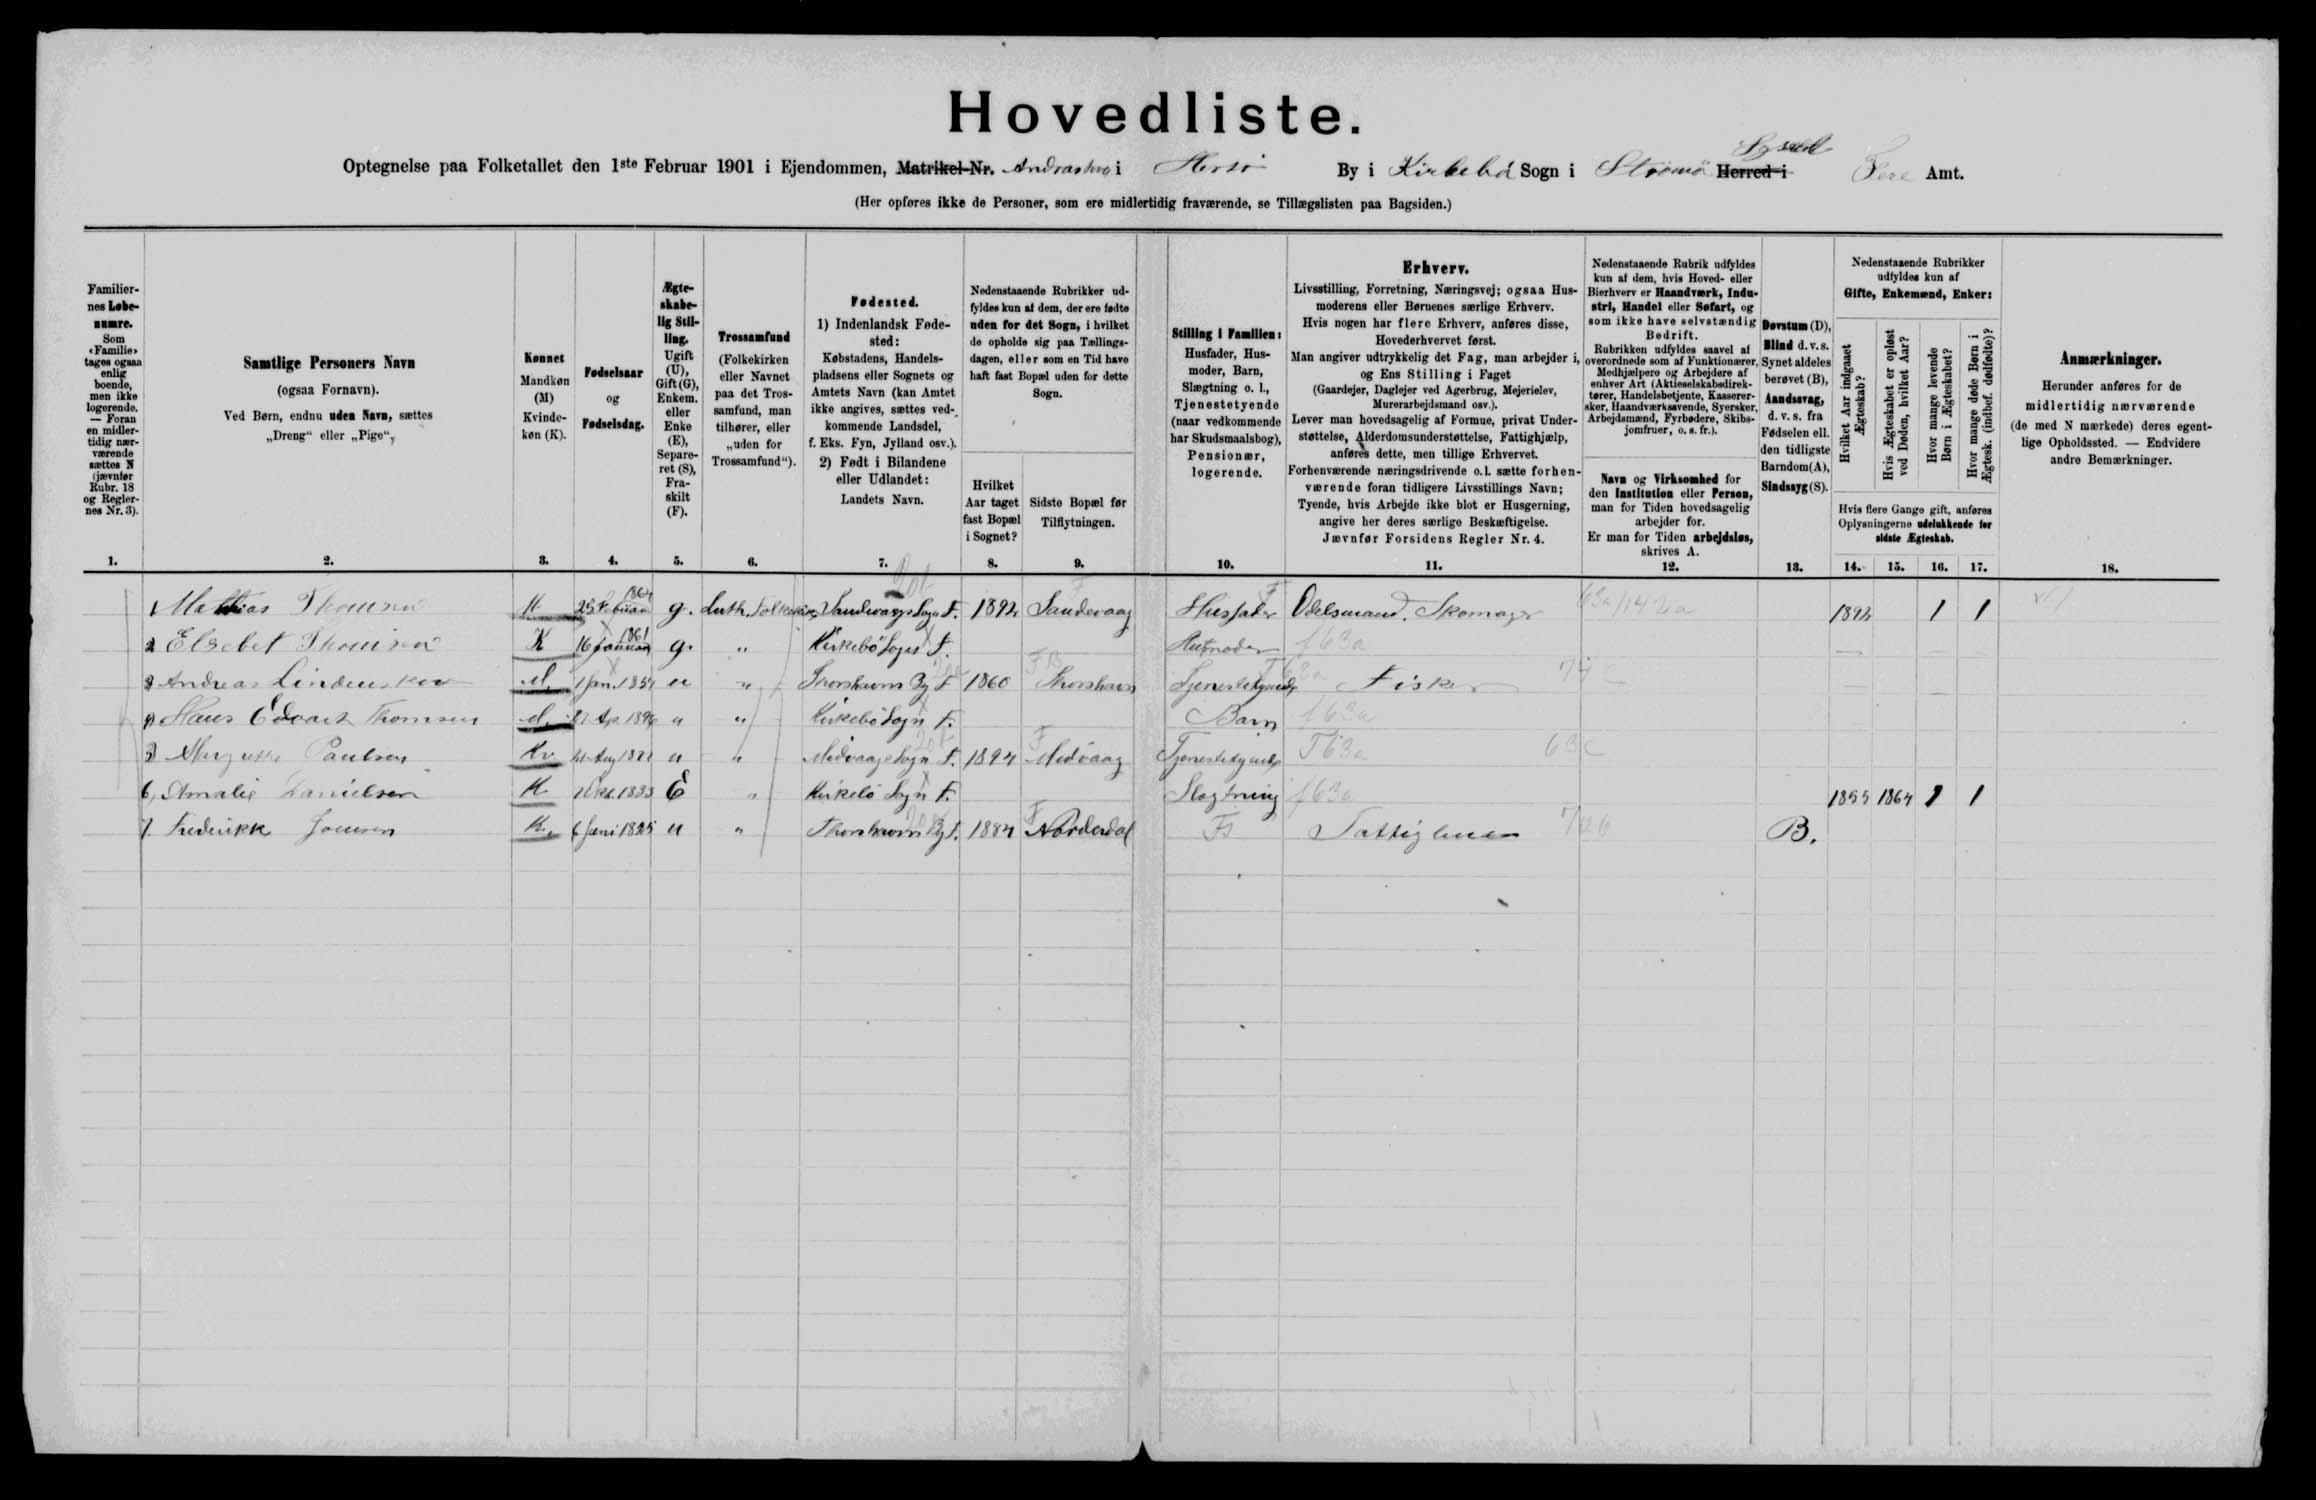 Hovedliste.
Syssel
Optegnelse paa Folketallet den 1ste Februar 1901 i Ejendommen, Matrikel-Nr. i By i Kirkebø Sogn i Strömö Herred i Amt.
(Her opføres ikke de Personer, som ere midlertidig fraværende, se Tillægslisten paa Bagsiden.)
Familier-
nes Løbe-
numre.
Som
«Familie»
tages ogsaa
enlig
boende,
men ikke
logerende.
— Foran
en midler-
tidig nær-
værende
sættes N
(jævnfør
Rubr. 18
og Regler-
nes Nr. 3).
Samtlige Personers Navn
(ogsaa Fornavn).
Ved Børn, endnu uden Navn, sættes
„Dreng“ eller „Pige“,
Kønnet
Mandkøn
(M)
Kvinde-
køn (K).
Fødselsaar
og
Fødselsdag.
Ægte-
skabe-
lig Stil-
ling.
Ugift
(U),
Gift (G),
Enkem.
eller
Enke
(E),
Separe-
ret (S),
Fra-
skilt
(F).
Trossamfund
(Folkekirken
eller Navnet
paa det Tros-
samfund, man
tilhører, eller
„uden for
Trossamfund“).
Fødested.
1) Indenlandsk Føde-
sted:
Købstadens, Handels-
pladsens eller Sognets og
Amtets Navn (kan Amtet
ikke angives, sættes ved-
kommende Landsdel,
f. Eks. Fyn, Jylland osv.).
2) Født i Bilandene
eller Udlandet:
Landets Navn.
Nedenstaaende Rubrikker ud-
fyldes kun af dem, der ere fødte
uden for det Sogn, i hvilket
de opholde sig paa Tællings-
dagen, eller som en Tid have
haft fast Bopæl uden for dette
Sogn.
Hvilket
Aar taget
fast Bopæl
i Sognet?
Sidste Bopæl før
Tilflytningen.
Stilling i Familien:
Husfader, Hus-
moder, Barn,
Slægtning o. l.,
Tjenestetyende
(naar vedkommende
har Skudsmaalsbog),
Pensionær,
logerende.
Erhverv.
Livsstilling, Forretning, Næringsvej; ogsaa Hus-
moderens eller Børnenes særlige Erhverv.
Hvis nogen har flere Erhverv, anføres disse,
Hovederhvervet først.
Man angiver udtrykkelig det Fag, man arbejder i,
og Ens Stilling i Faget
(Gaardejer, Daglejer ved Agerbrug, Mejerielev,
Murerarbejdsmand osv.).
Lever man hovedsagelig af Formue, privat Under-
støttelse, Alderdomsunderstøttelse, Fattighjælp,
anføres dette, men tillige Erhvervet.
Forhenværende næringsdrivende o. l. sætte forhen-
værende foran tidligere Livsstillings Navn;
Tyende, hvis Arbejde ikke blot er Husgerning,
angive her deres særlige Beskæftigelse.
Jævnfør Forsidens Regler Nr. 4.
Nedenstaaende Rubrik udfyldes
kun af dem, hvis Hoved- eller
Bierhverv er Haandværk, Indu-
stri, Handel eller Søfart, og
som ikke have selvstændig
Bedrift.
Rubrikken udfyldes saavel af
overordnede som af Funktionærer,
Medhjælpere og Arbejdere af
enhver Art (Aktieselskabsdirek-
tører, Handelsbetjente, Kasserer-
sker, Haandværkssvende, Syersker,
Arbejdsmænd, Fyrbødere, Skibs-
jomfruer, o. s. fr.).
Navn og Virksomhed for
den Institution eller Person,
man for Tiden hovedsagelig
arbejder for.
Er man for Tiden arbejdsløs,
skrives A.
Døvstum (D),
Blind d. v. s.
Synet aldeles
berøvet (B),
Aandssvag,
d. v. s. fra
Fødselen ell.
den tidligste
Barndom (A),
Sindssyg (S).
Nedenstaaende Rubrikker
udfyldes kun af
Gifte, Enkemænd, Enker:
Hvilket Aar indgaaet
Ægteskab?
Hvis Ægteskabet er opløst
ved Døden, hvilket Aar?
Hvor mange levende
Børn i Ægteskabet?
Hvor mange døde Børn i
Ægtesk. (indbef. dødfødte)?
Hvis flere Gange gift, anføres
Oplysningerne udelukkende for
sidste Ægteskab.
Anmærkninger.
Herunder anføres for de
midlertidig nærværende
(de med N mærkede) deres egent-
lige Opholdssted. — Endvidere
andre Bemærkninger.
1. 2. 3. 4. 5. 6. 7. 8. 9. 10. 11. 12. 13. 14. 15. 16. 17. 18.
1 Mathias Thomsen 1864 g. Luth. Folkekirke Sandevaags Sogn F. 1892 Sandevaag Husfader Odelsmand. Skomager 1892 1 1
2 Elsebet Thomsen K 16 Januar 1861 g. " Kirkebö Sogn F. Husmoder f63a
3 Andreas Lindenskov M. 1 Jan. 1854 u " Thorshavns By F 1860 Thorshavn Tjenestetyende Fisker 74 c
4) Hans Edvart Thomsen M. u " Kirkebö Sogn F. Barn f63a
5) Paulsen Kv u " Midvaags Sogn F. 1894 Midvaag Tjenestetyende T63a 63c
6, Amalie Danielsen K 1833 E " Kirkebö Sogn F. Slagtning f63a 1855 1864 1 1
7. Frederikke Joensen K. 6 Juni 1825 u " Thorshavns By F. 1884 Norderdal Fs Fattiglem B.